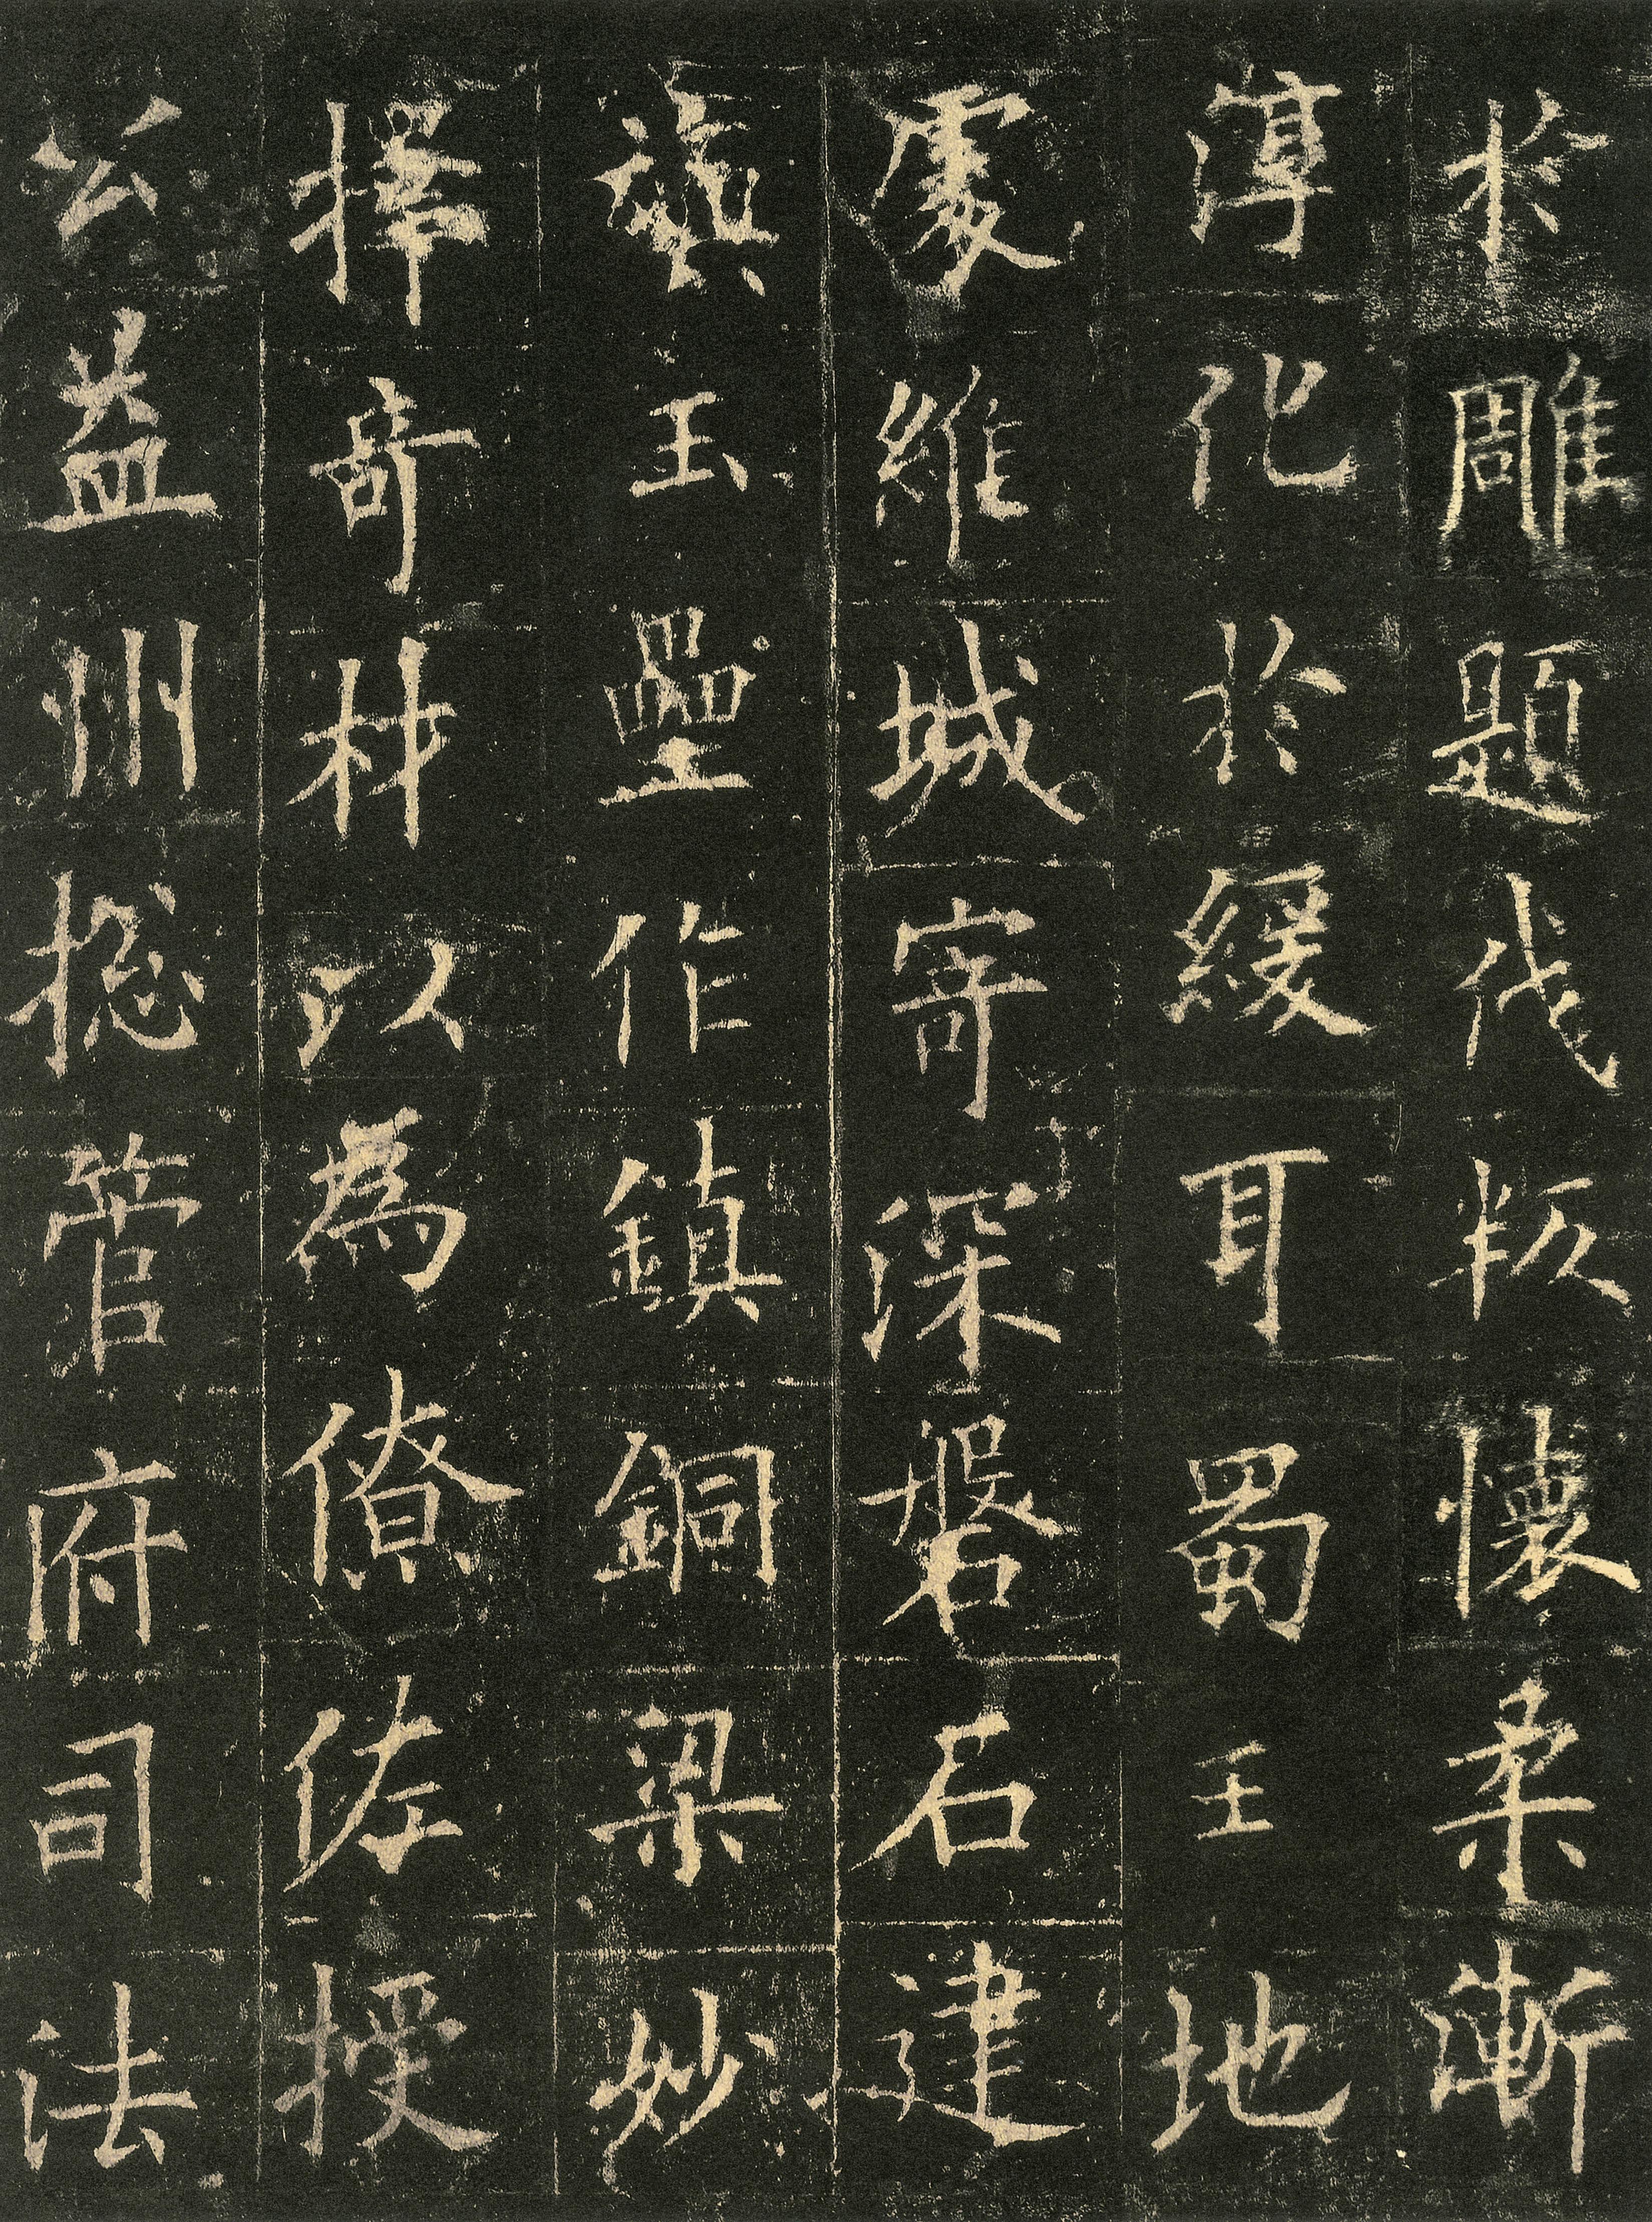 於雕題伐叛懷柔漸
淳化於緩耳蜀王地
處維城寄深磐石建
旟玉壘作鎮銅梁妙
擇奇材以爲僚佐授
公益州揔管府司法